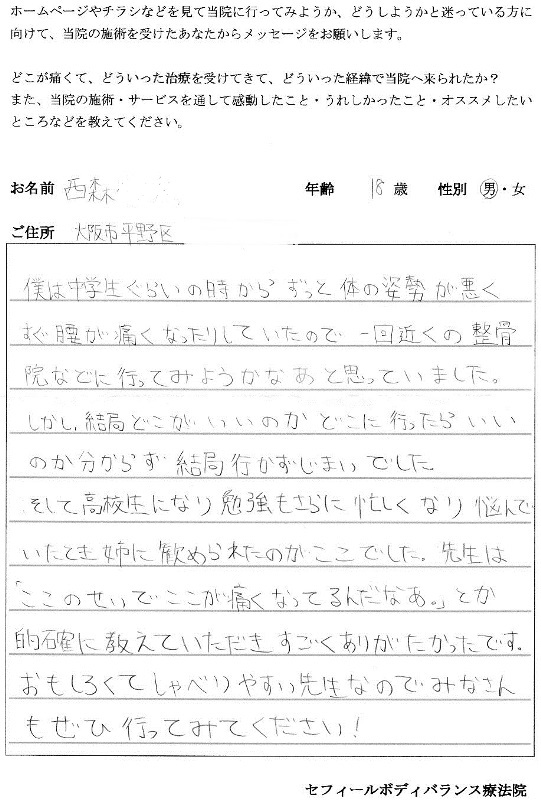 ホームページやチラシなどを見て当院に行ってみようか、どうしようかと迷っている方に
向けて、当院の施術を受けたあなたからメッセージをお願いします。
どこが痛くて、どういった治療を受けてきて、どういった経緯で当院へ来られたか？
また、当院の施術・サービスを通して感動したこと・うれしかったこと・オススメしたい
ところなどを教えてください。
お名前 西森 年齢 18 歳 性別 男・女
ご住所 大阪市平野区
僕は中学生ぐらいの時からずっと体の姿勢が悪く
すぐ腰が痛くなったりしていたので一回近くの整骨
院などに行ってみようかなあと思っていました。
しかし、結局どこがいいのかどこに行ったらいい
のか分からず結局行かずじまいでした
そして高校生になり勉強もさらに忙しくなり悩んで
いたとき姉に歓められたのがここでした。先生は
「ここのせいでここが痛くなってるんだなあ。」とか
的確に教えていただきすごくありがたかったです。
おもしろくてしゃべりやすい先生なのでみなさん
もぜひ行ってみてください!
セフィールボディバランス療法院